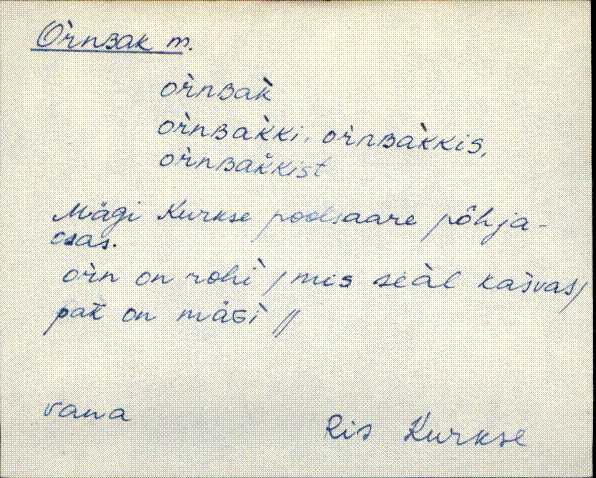 Òrnbak m.
òrnʙàk
òrnʙàkki, òrnʙàkkis,
òrnʙàkkist
Mägi Kurkse poolsaare põhja-
osas.
òrn on rohì / mis seàl kašvas /
pak̆ on mäɢì //
vana
Ris Kurkse